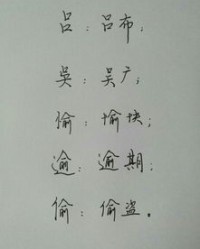 吕：吕布；
吴：吴广；
愉：愉快；
逾：逾期；
偷：偷盗。